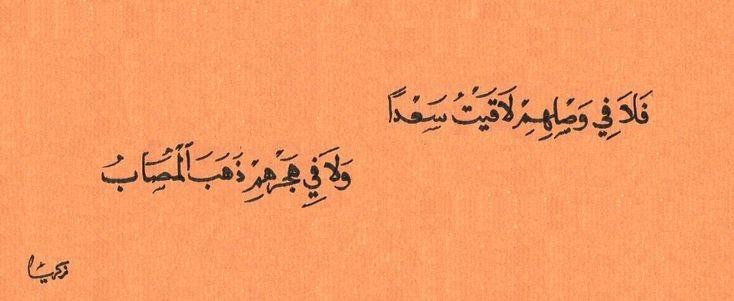 فَلَا فِي وَصْلِهِمْ لَاقَيْتُ سَعْدًا
وَلَا فِي هَجْرِهِمْ ذَهَبَ ٱلْمُصَابُ
زكريا